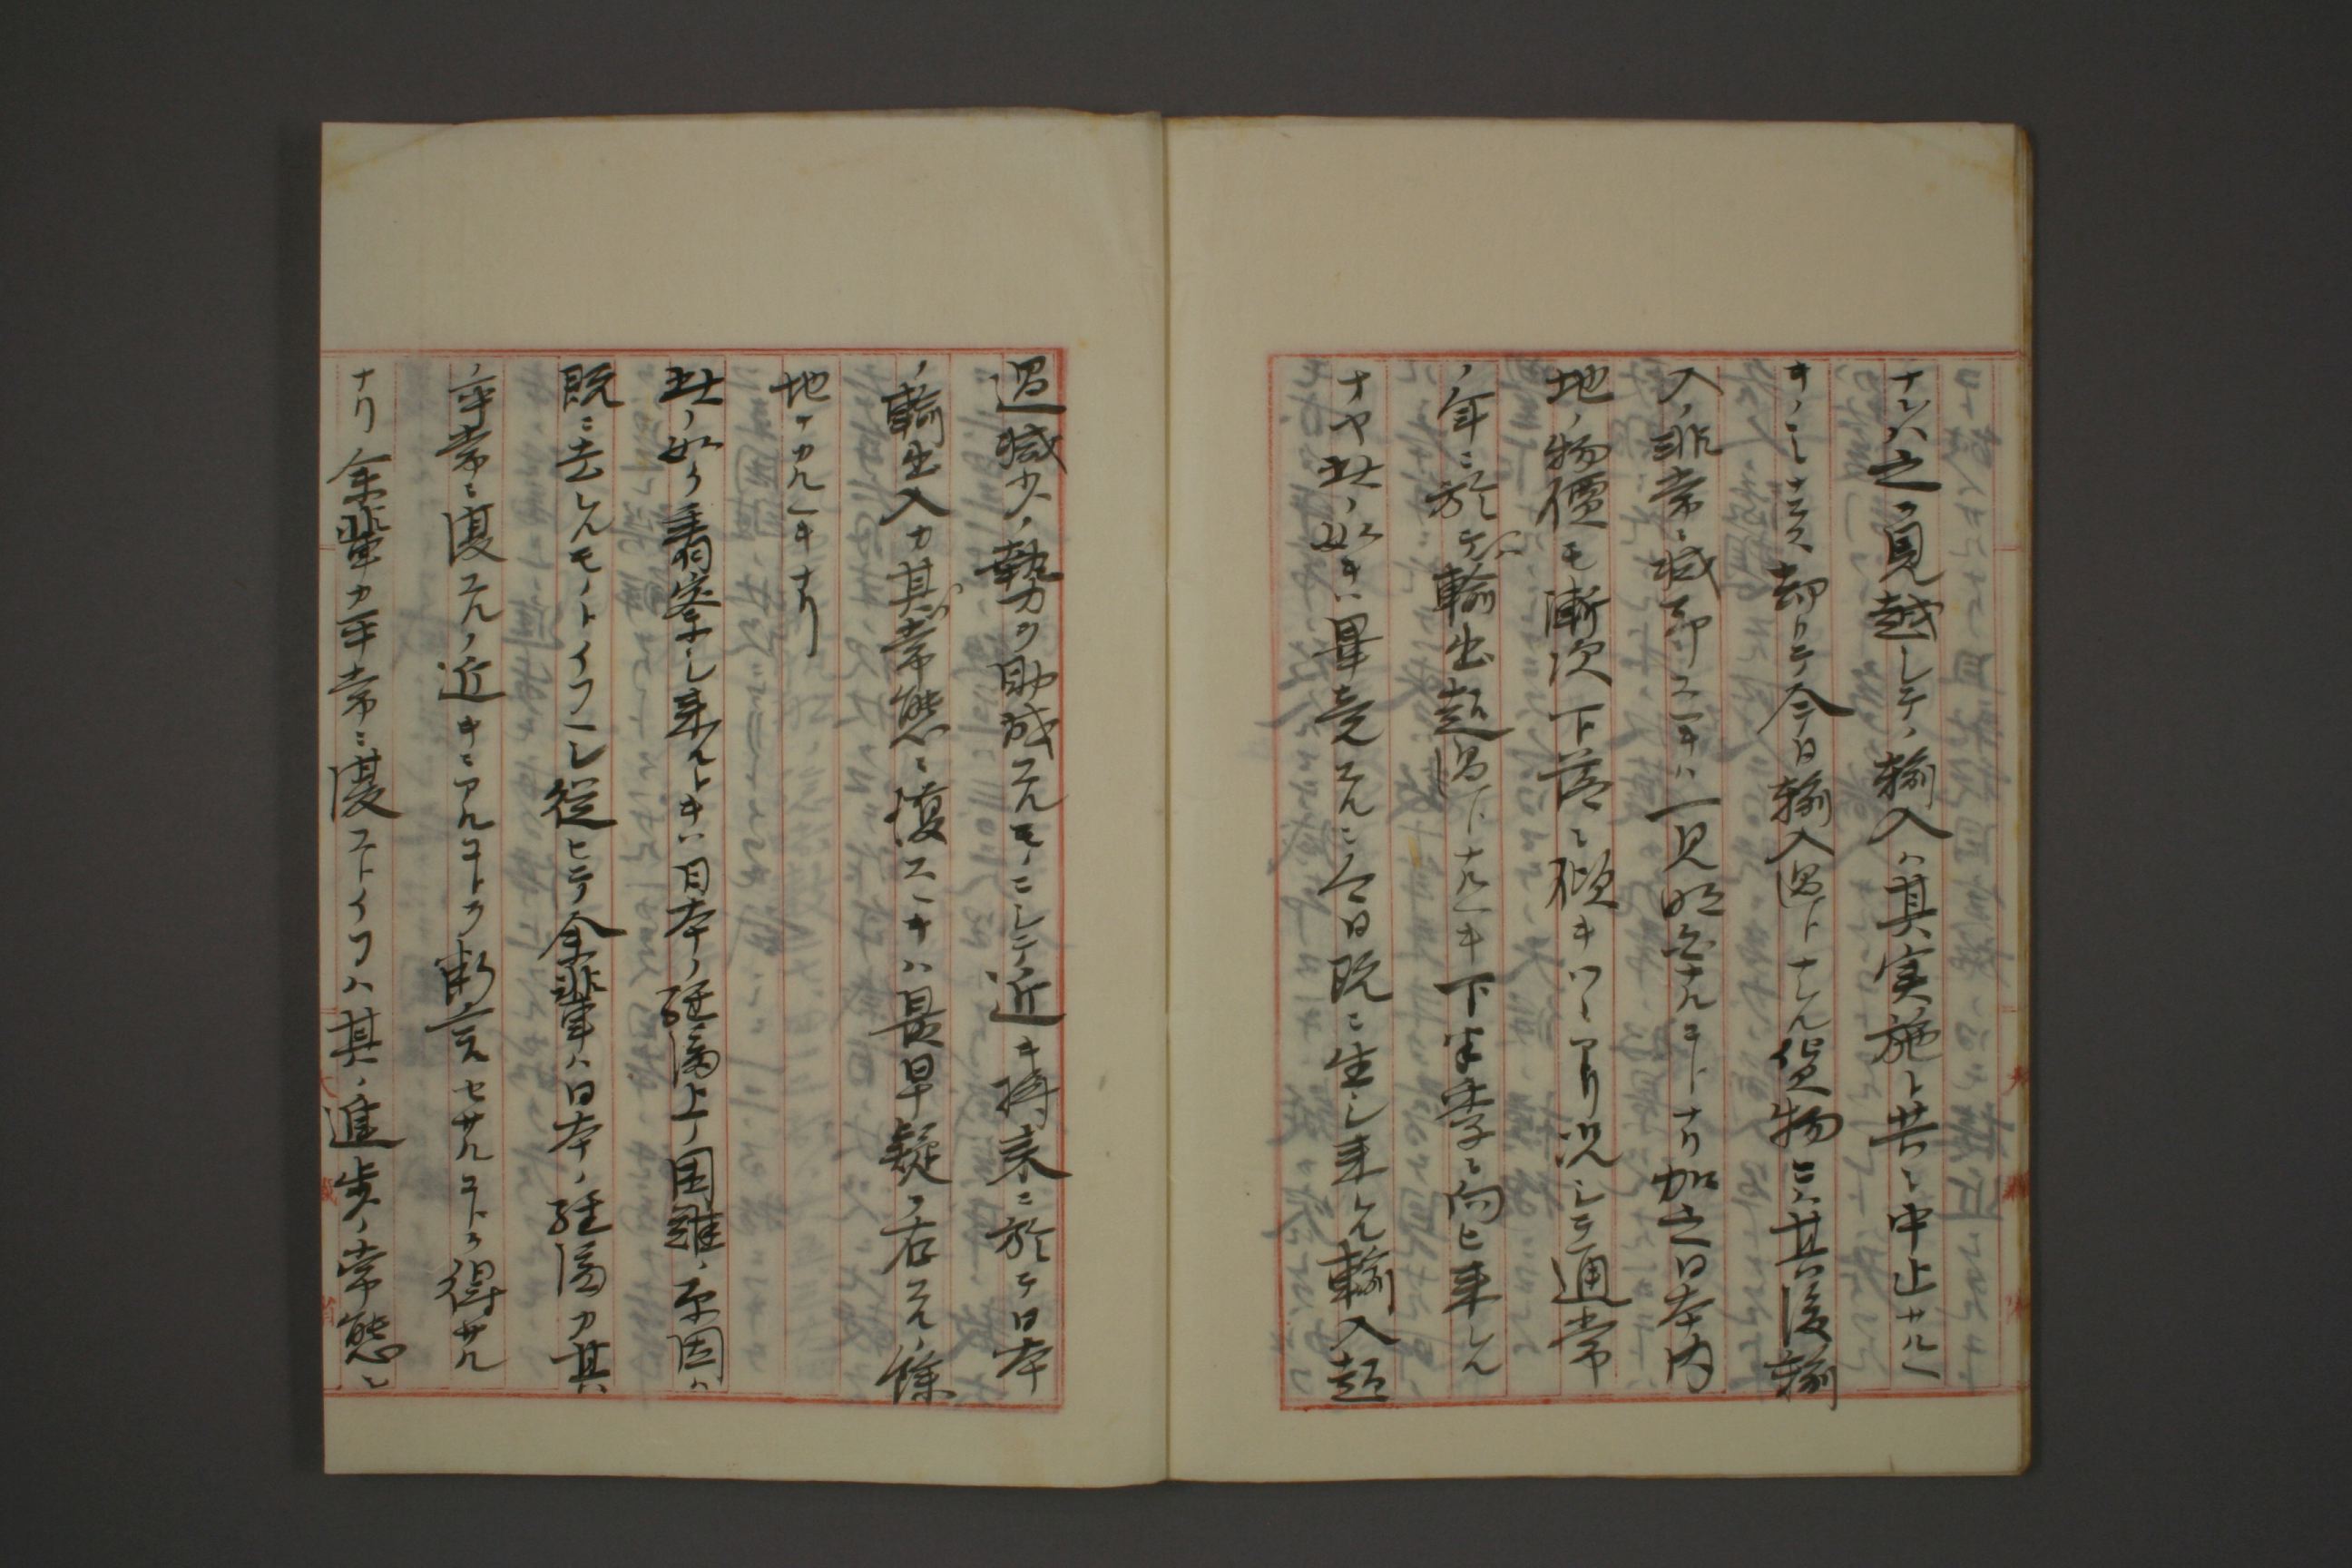 ナレハ之ヲ見越シテノ輸入ハ其実施ト共ニ中止サルヘ
キノミナラス却リテ今日輸入過下ナレル貨物ニハ其後輸
入ノ非常ニ減却スヘキハ一見明白ナルコトナリ加之日本内
地ノ物價モ漸次下落ニ傾キツヽアリ況シテ通常
ノ年ニ於テハ輸出超過下ナルヘキ下半季ニ向ヒ来レル
ナヤ此ノ如キハ畢竟スルニ今日既ニ生シ来レル輸入超
過減少ノ勢力ヲ助成スルモノニシテ近キ将来ニ於テ日本
ノ輸出入カ其常態ニ復スヘキハ最早疑ヲ容ルヽノ餘
地ナカルヘキナリ
此ノ如ク翥察シ来ルトキハ日本ノ経済上ノ困難ノ原因ハ
既ニ去レルモノトイフヘシ從ヒテ余輩ハ日本ノ経済カ其
ノ平常ニ復スルノ近キニアルコトヲ断言セサルコトヲ得サル
ナリ余輩カ平常ニ復ストイフハ其ノ進歩ノ常態ニ